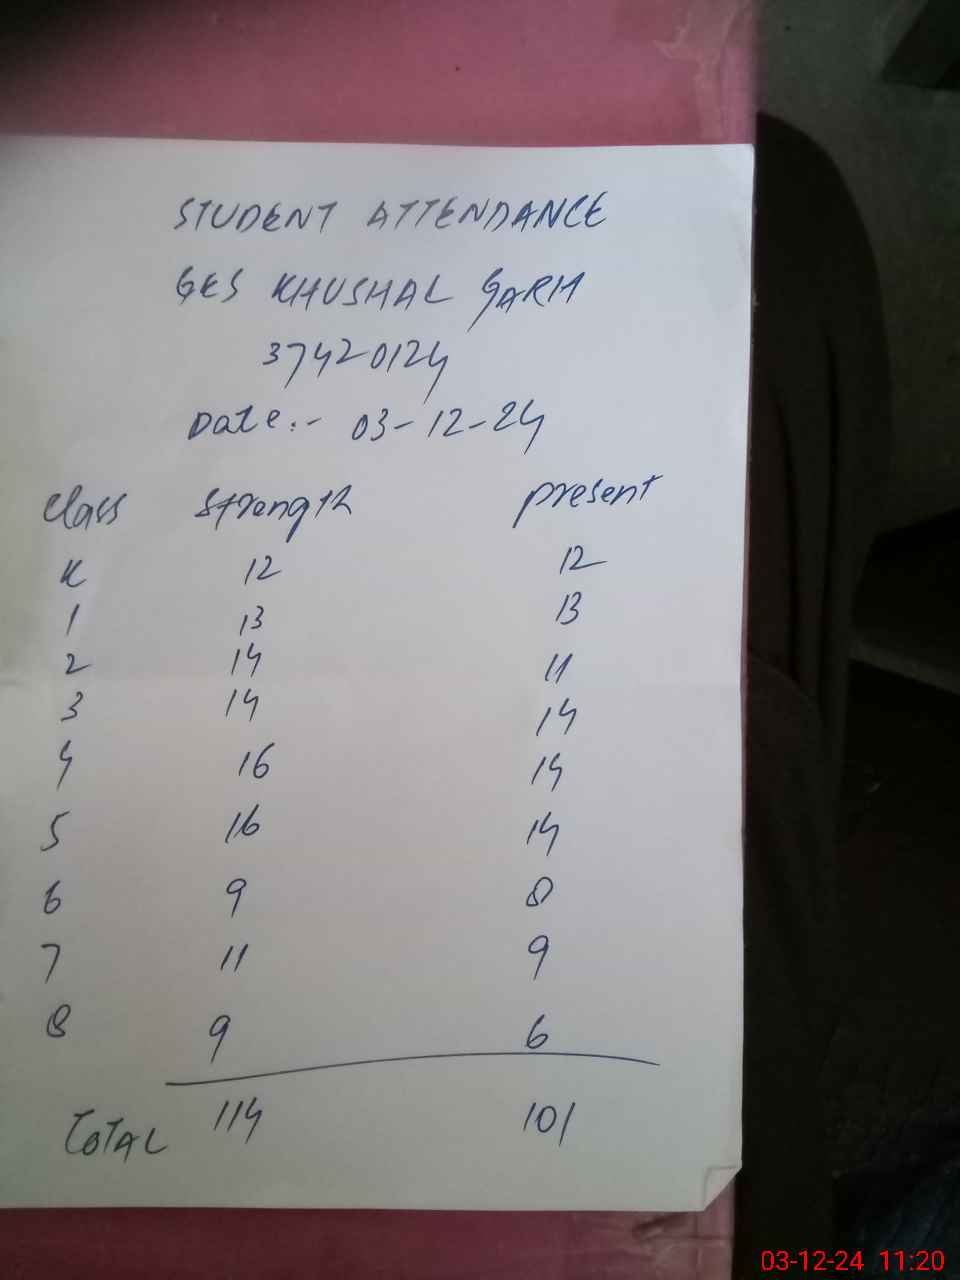 STUDENT ATTENDANCE
GES KHUSHAL GARH
37420124
Date:- 03-12-24
Class Strength present
K 12 12
1 13 13
2 14 11
3 14 14
4 16 14
5 16 14
6 9 8
7 11 9
8 9 6
TOTAL 114 101
03-12-24 11:20